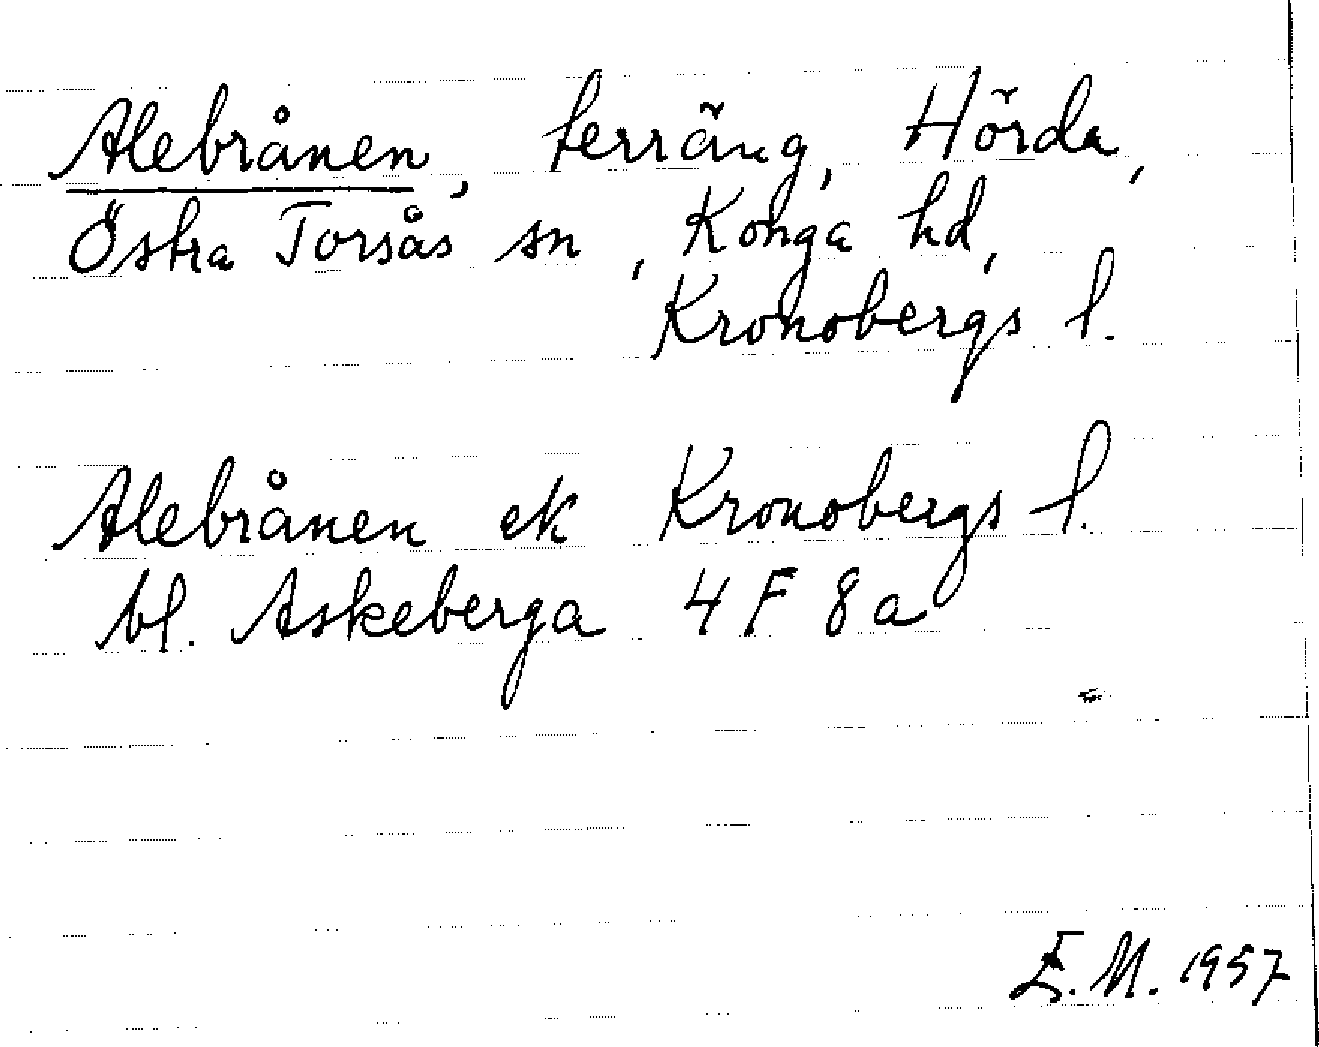 Alebrånen, terräng, Hörda,
Östra Torsås sn, Konga hd,
Kronobergs l.
Alebrånen ek Kronobergs l.
bl. Askeberga 4 F 8 a
E.M. 1957